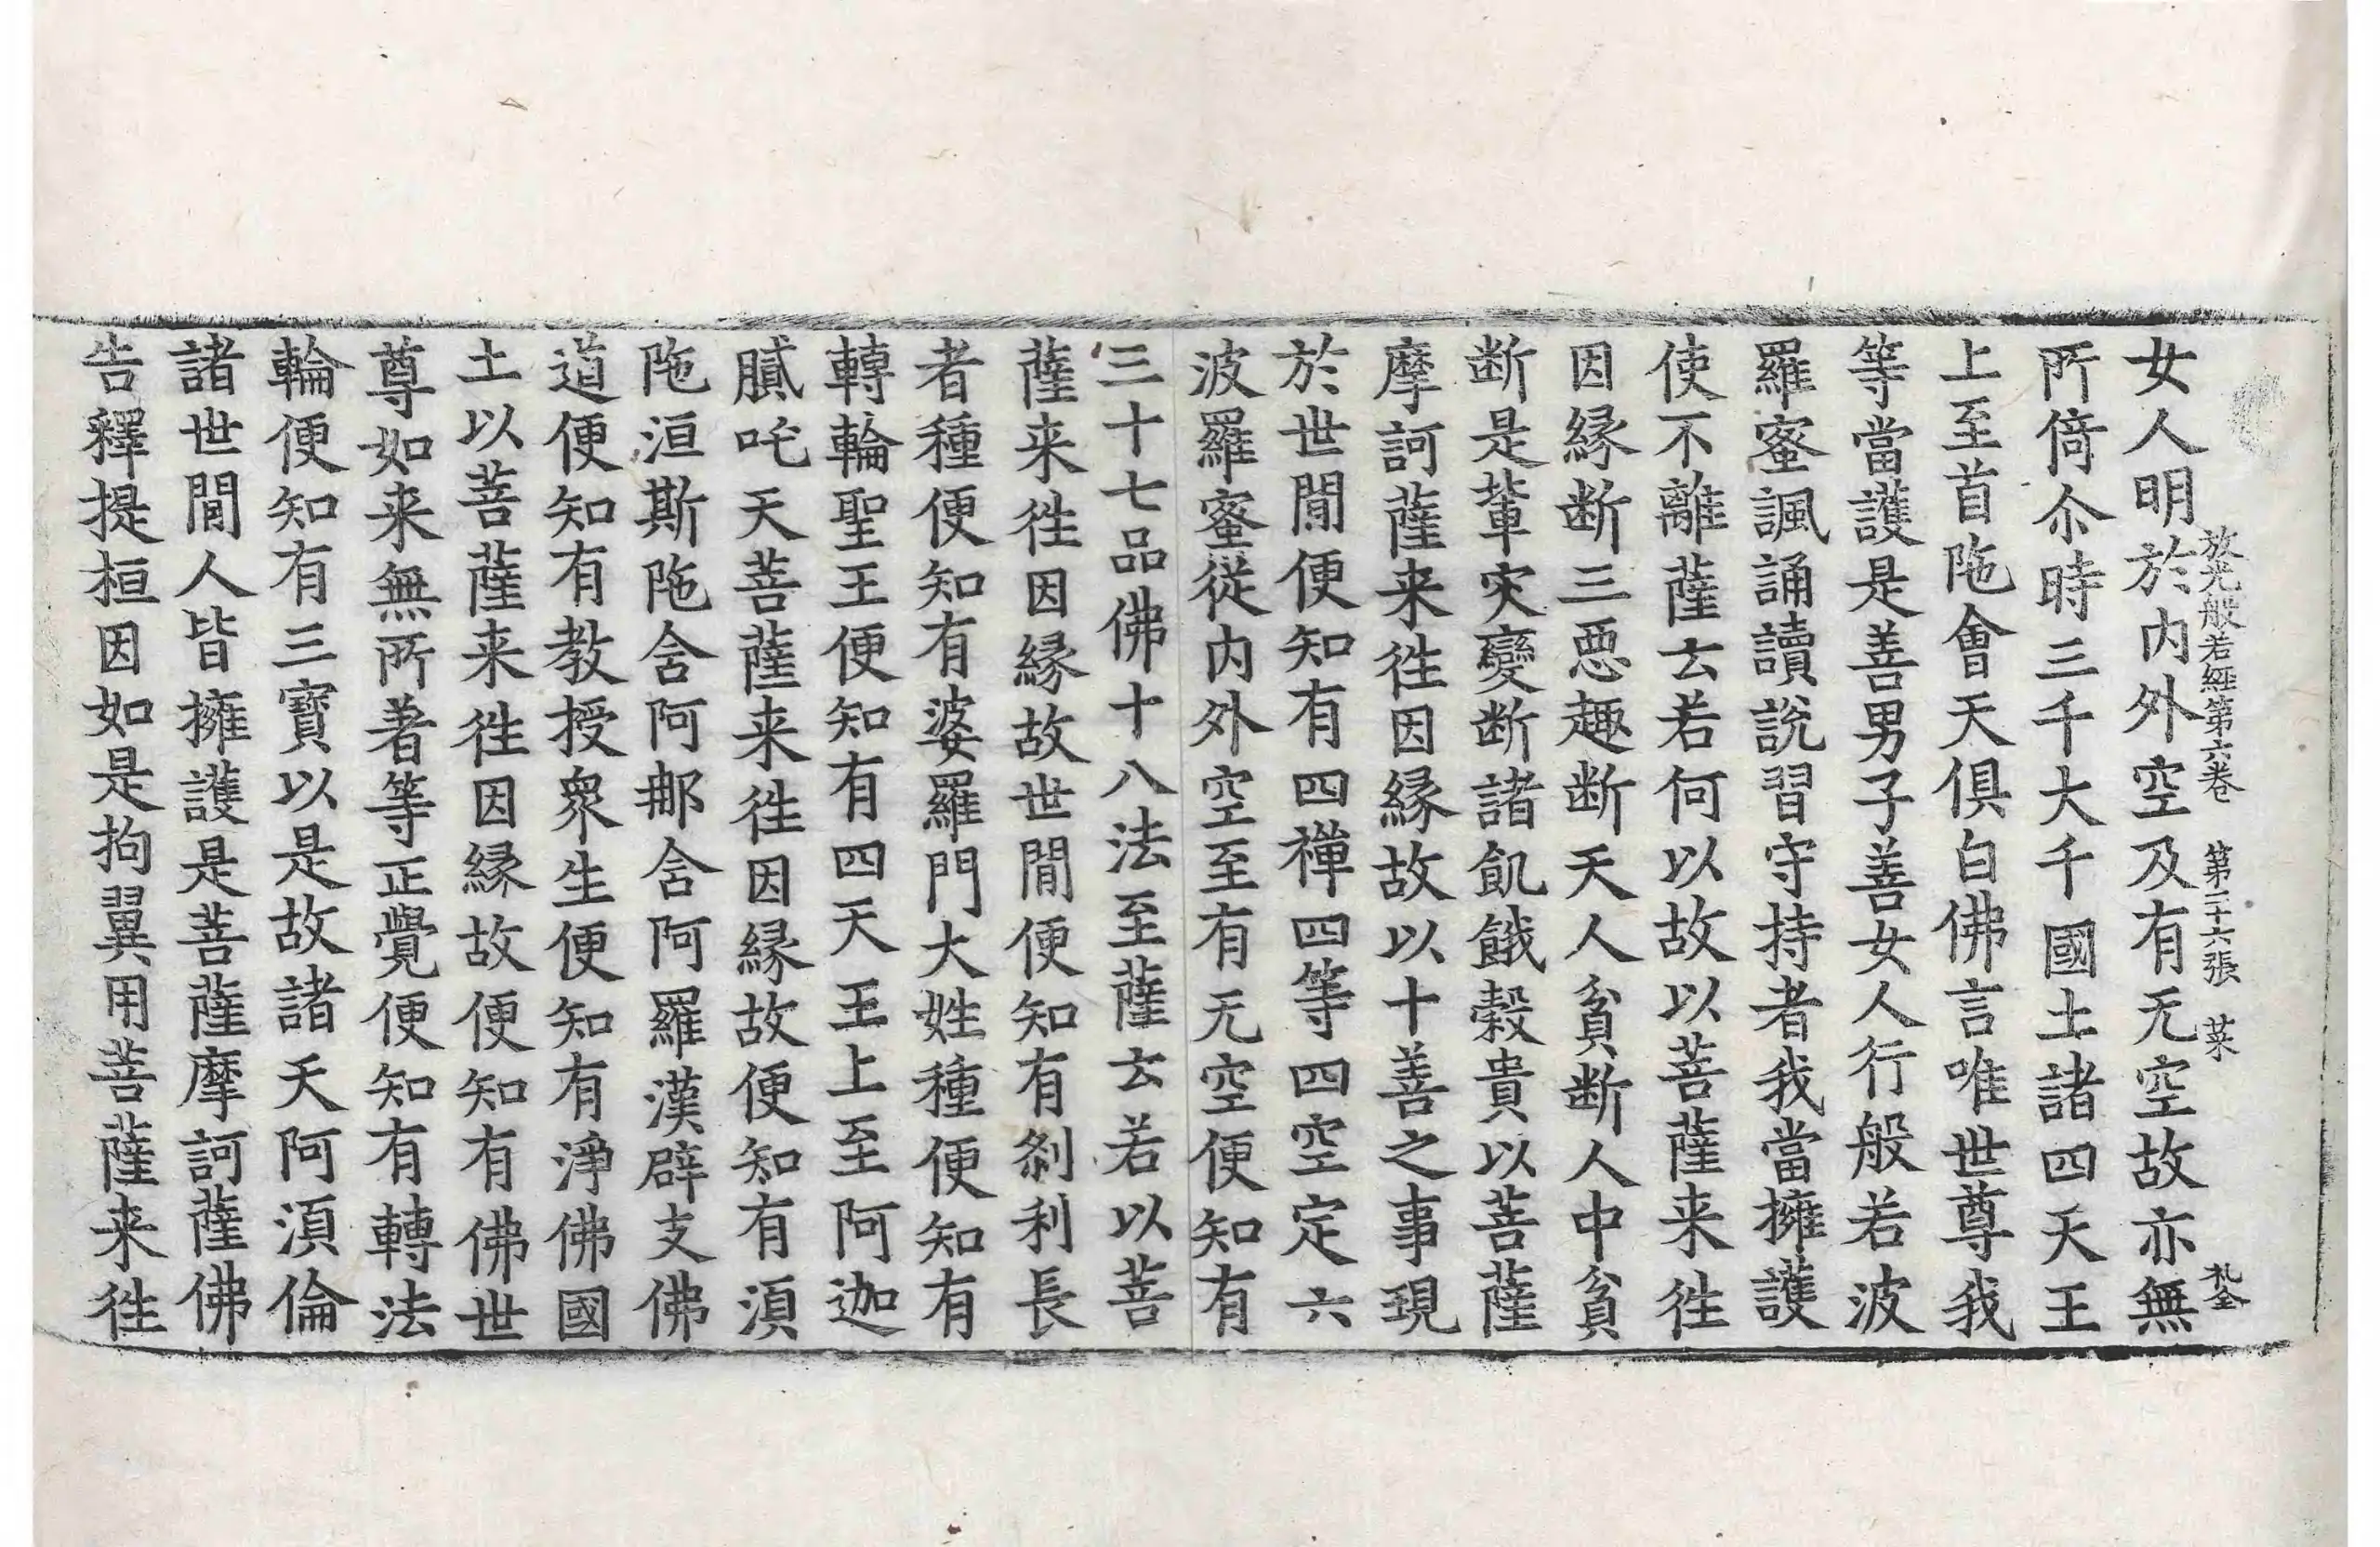 放光般若經第六卷 第二十六張 菜 礼全
女人明於内外空及有无空故亦無
所倚尒時三千大千國土諸四天王
上至首陁會天俱白佛言唯世尊我
等當護是善男子善女人行般若波
羅蜜諷誦讀說習守持者我當擁護
使不離薩云若何以故以菩薩来徃
因縁断三惡趣断天人貧断人中貧
断是輩灾變断諸飢餓穀貴以菩薩
摩訶薩来徃因縁故以十善之事現
於世閒便知有四禪四等四空定六
波羅蜜從内外空至有无空便知有
三十七品佛十八法至薩云若以菩
薩来徃因縁故世閒便知有剎利長
者種便知有婆羅門大姓種便知有
轉輪聖王便知有四天王上至阿迦
膩吒天菩薩来徃因縁故便知有湏
陁洹斯陁含阿那含阿羅漢辟支佛
道便知有教授衆生便知有淨佛國
土以菩薩来徃因縁故便知有佛世
尊如来無所著等正覺便知有轉法
輪便知有三寶以是故諸天阿湏倫
諸世閒人皆擁護是菩薩摩訶薩佛
告釋提桓因如是拘翼用菩薩来徃